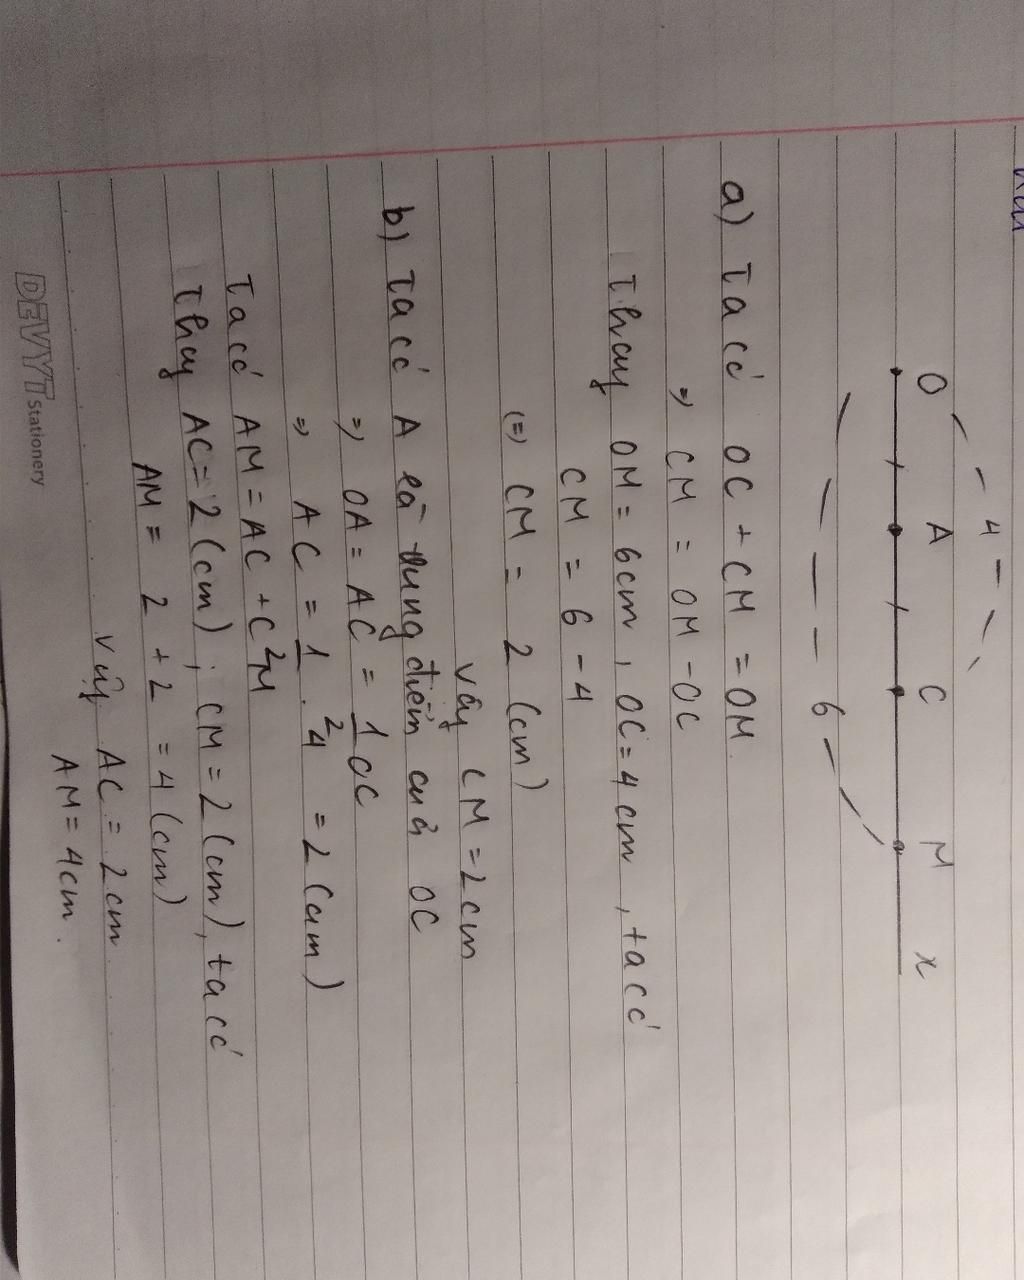 O A C M x
4
6
a) Ta có OC + CM = OM
=> CM = OM - OC
Thay OM = 6cm, OC = 4cm, ta có
CM = 6 - 4
(=) CM = 2 (cm)
Vậy CM = 2cm
b) Ta có A là trung điểm của OC
=> OA = AC = 1 OC
=> AC = 1 . 4 2 = 2 (cm)
Ta có AM = AC + CM
Thay AC = 2 (cm) ; CM = 2 (cm), ta có
AM = 2 + 2 = 4 (cm)
Vậy AC = 2cm
AM = 4cm.
DEVYT Stationery